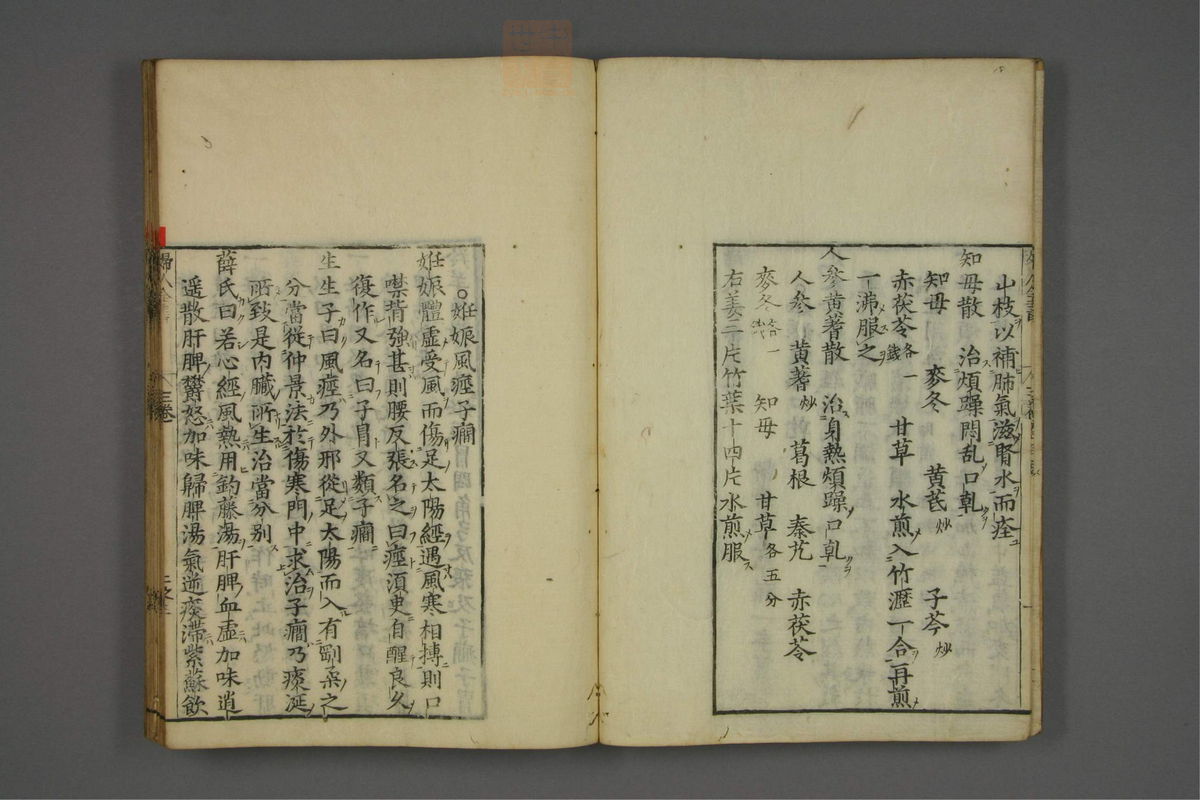 山枝以補肺氣滋腎水而痊
知母散　治煩躁悶乱口乹
知母　麥冬　黄芪炒　子芩炒
赤茯苓各一錢　甘草　水煎入竹瀝一合再煎
一沸服之
人參黄蓍散　治身熱煩躁口乹
人參　黄蓍炒　葛根　秦艽　赤茯苓
麥冬各一錢　知母　甘草各五分
右姜三片竹葉十四片水煎服
○妊娠風痙子癇
妊娠體虚受風而傷足太陽經遇風寒相搏則口
噤背強甚則腰反張名之曰痙湏臾自醒良久
復作又名曰子冒又類子癇
生生子曰風痙乃外邪從足太陽而入有剛柔之
分當從仲景法於傷寒門中求治子癇乃痰涎
所致是内臓所生治當分别
薛氏曰若心經風熱用鈎藤湯肝脾血虚加味逍
遥散肝脾欝怒加味歸脾湯氣逆痰滞紫蘇飲
婦人
三卷